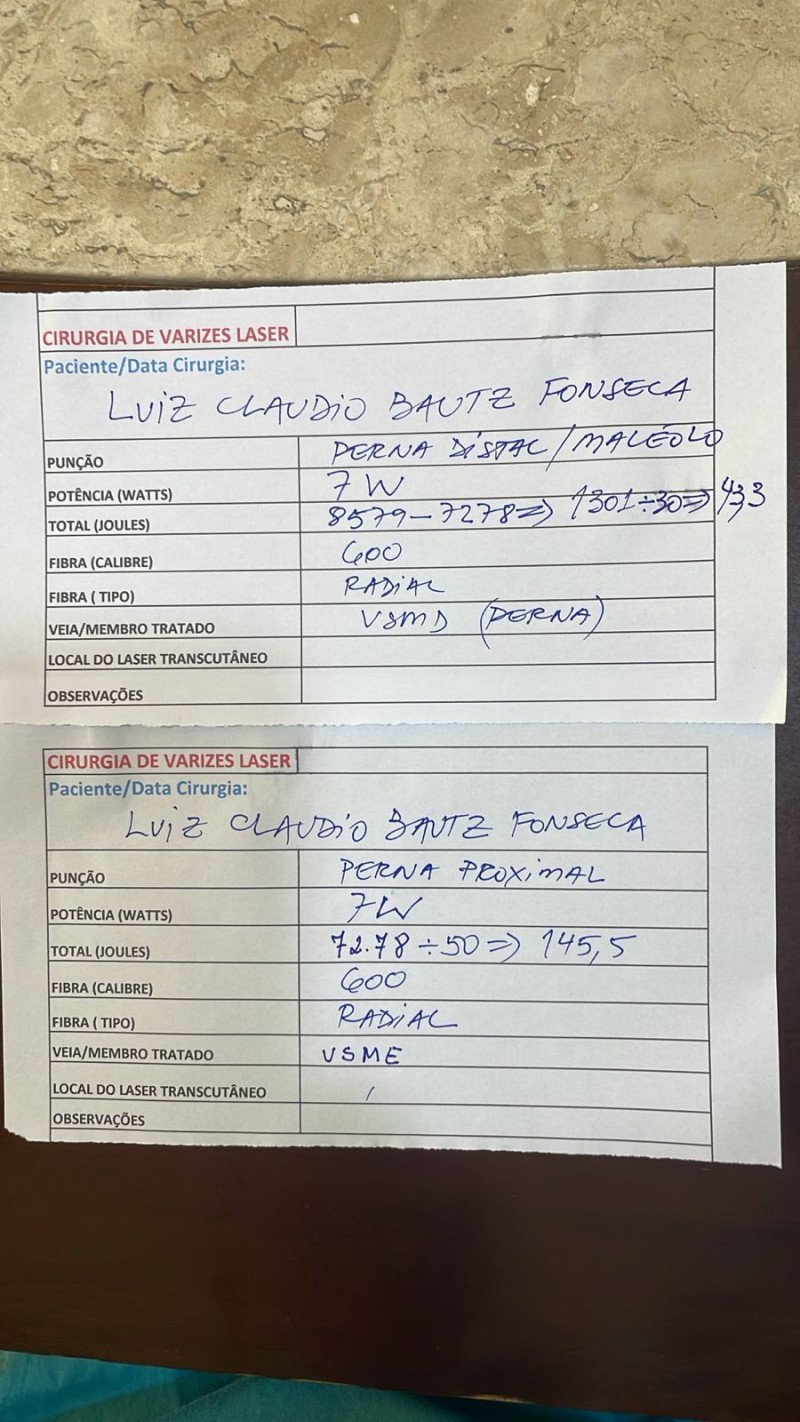 CIRURGIA DE VARIZES LASER
Paciente/Data Cirurgia:
LUIZ CLAUDIO BAUTZ FONSECA
PUNÇÃO PERNA DISTAL/MALÉOLO
POTÊNCIA (WATTS) 7W
TOTAL (JOULES) 8579-7278=> 1301÷30=> 43,3
FIBRA (CALIBRE) 600
FIBRA ( TIPO) RADIAL
VEIA/MEMBRO TRATADO VSMD (PERNA)
LOCAL DO LASER TRANSCUTÂNEO
OBSERVAÇÕES
CIRURGIA DE VARIZES LASER
Paciente/Data Cirurgia:
LUIZ CLAUDIO BAUTZ FONSECA
PUNÇÃO PERNA PROXIMAL
POTÊNCIA (WATTS) 7W
TOTAL (JOULES) 72.78÷50=> 145,5
FIBRA (CALIBRE) 600
FIBRA ( TIPO) RADIAL
VEIA/MEMBRO TRATADO VSME
LOCAL DO LASER TRANSCUTÂNEO /
OBSERVAÇÕES